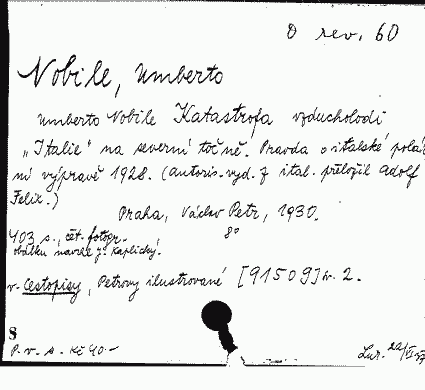 0 rev. 60
Nobile, Umberto
Umberto Nobile Katastrofa vzducholodi
„Italie" na severní točně. Pravda o italské polár
ní výpravě 1928. (Autoris. vyd. Z ital. přeložil Adolf
Felix.)
Praha, Václav Petr, 1930.
8°
403 s., čet. fotogr.
obálku navrhl J. Kaplický.
v. Cestopisy, Petrovy ilustrované [91509] sv. 2.
S
P. v. s. Kč 40.-
Lur.